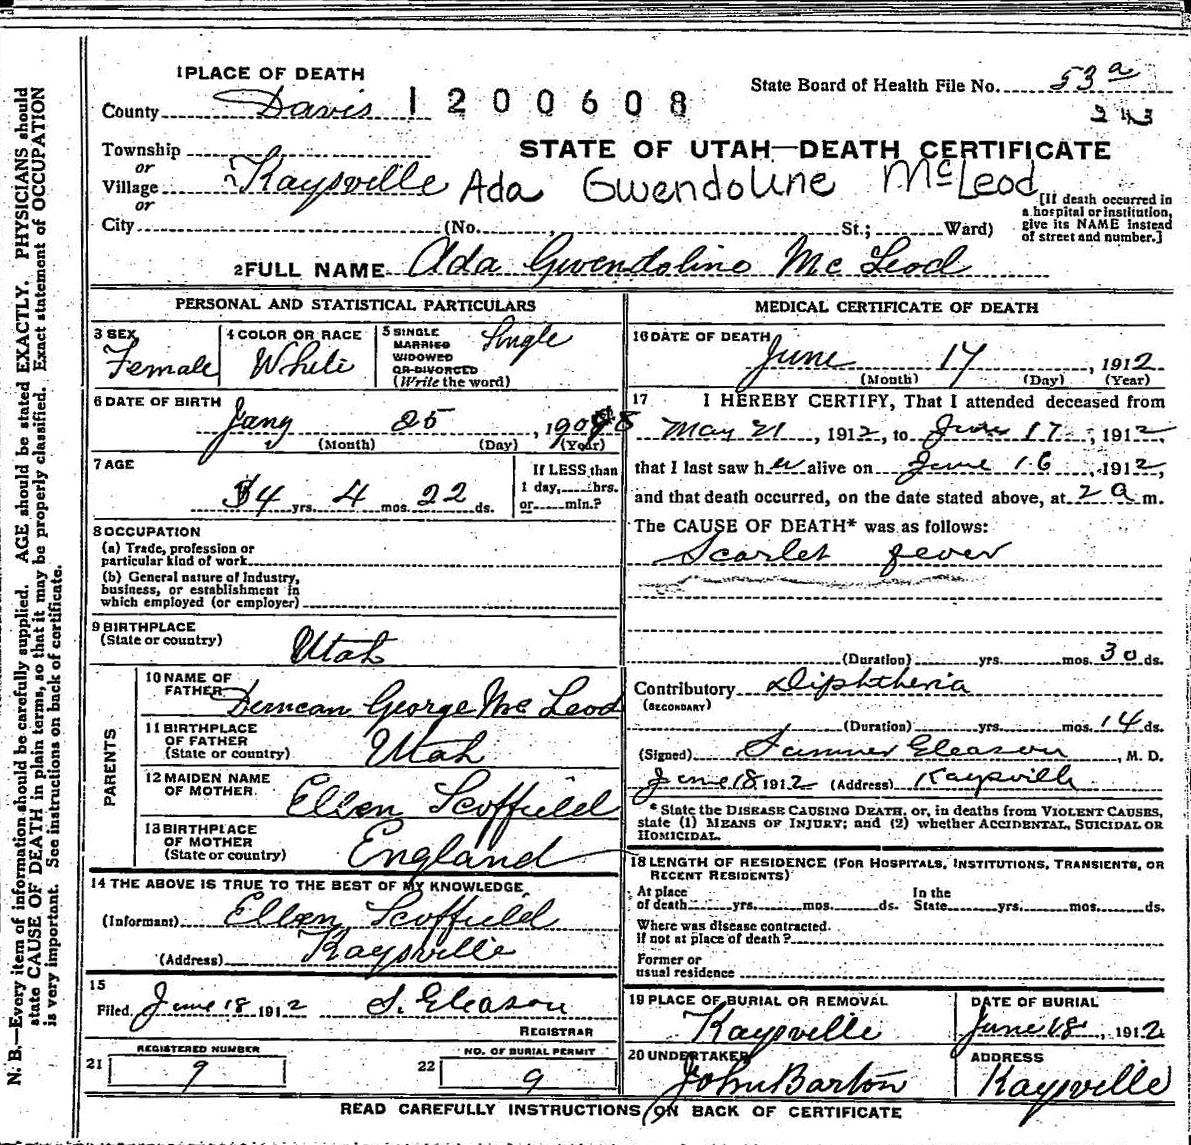 1 PLACE OF DEATH
County Davis 1200608
State Board of Health File No. 53 a
243
Township
or
Village Kaysville
or
City (No. , St.; Ward)
STATE OF UTAH—DEATH CERTIFICATE
Ada Gwendoline McLeod
[If death occurred in
a hospital or institution,
give its NAME instead
of street and number.]
2 FULL NAME Ada Gwendoline Mc Leod
PERSONAL AND STATISTICAL PARTICULARS
3 SEX
Female
4 COLOR OR RACE
White
5 SINGLE
MARRIED
WIDOWED
OR DIVORCED
(Write the word)
Single
6 DATE OF BIRTH
Jany 25, 1908
(Month) (Day) (Year)
7 AGE
4 yrs. 4 mos. 22 ds.
If LESS than
1 day, hrs.
or min.?
8 OCCUPATION
(a) Trade, profession or
particular kind of work
(b) General nature of Industry,
business, or establishment in
which employed (or employer)
9 BIRTHPLACE
(State or country)
Utah
PARENTS
10 NAME OF
FATHER
Duncan George Mc Leod
11 BIRTHPLACE
OF FATHER
(State or country)
Utah
12 MAIDEN NAME
OF MOTHER
Ellen Scoffield
13 BIRTHPLACE
OF MOTHER
(State or country)
England
14 THE ABOVE IS TRUE TO THE BEST OF MY KNOWLEDGE
(Informant) Ellen Scoffield
(Address) Kaysville
15
Filed June 18 1912 S. Gleason
REGISTRAR
21 REGISTERED NUMBER
9
22 NO. OF BURIAL PERMIT
9
MEDICAL CERTIFICATE OF DEATH
16 DATE OF DEATH
June 17, 1912
(Month) (Day) (Year)
17 I HEREBY CERTIFY, That I attended deceased from
May 21, 1912, to June 17, 1912,
that I last saw her alive on June 16, 1912,
and that death occurred, on the date stated above, at 2 a m.
The CAUSE OF DEATH* was as follows:
Scarlet fever
(Duration) yrs. mos. 30 ds.
Contributory Diphtheria
(SECONDARY)
(Duration) yrs. mos. 14 ds.
(Signed) Sumner Gleason, M. D.
June 18 1912 (Address) Kaysville
* State the DISEASE CAUSING DEATH, or, in deaths from VIOLENT CAUSES,
state (1) MEANS OF INJURY; and (2) whether ACCIDENTAL, SUICIDAL OR
HOMICIDAL.
18 LENGTH OF RESIDENCE (FOR HOSPITALS, INSTITUTIONS, TRANSIENTS, OR
RECENT RESIDENTS)
At place
of death yrs. mos. ds.
In the
State yrs. mos. ds.
Where was disease contracted.
if not at place of death?
Former or
usual residence
19 PLACE OF BURIAL OR REMOVAL
Kaysville
DATE OF BURIAL
June 18, 1912
20 UNDERTAKER
John Barton
ADDRESS
Kaysville
READ CAREFULLY INSTRUCTIONS ON BACK OF CERTIFICATE
N. B.—Every item of information should be carefully supplied. AGE should be stated EXACTLY. PHYSICIANS should
state CAUSE OF DEATH in plain terms, so that it may be properly classified. Exact statement of OCCUPATION
is very important. See instructions on back of certificate.